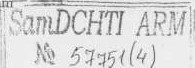 SamDCHTI ARM
№ 57751(4)